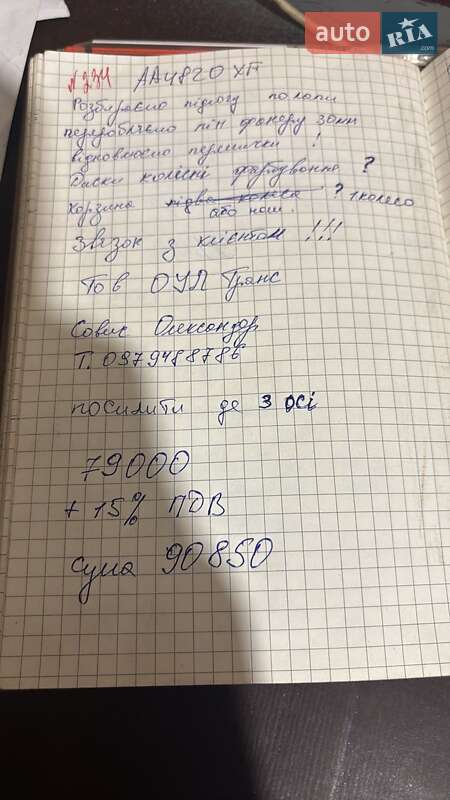 auto RIA .com
N 234 АА4820ХП
Розбираємо підлогу полали
переробляємо під фанеру зони
відновлюємо перемички !
Диски колісні фарбування ?
Корзина підва колеса ? 1 колесо
або наш.
Звязок з клієнтом !!!
Тов ОУЛ Транс
Совис Олександр
Т. 0979488786
посилити де 3 осі
79000
+ 15% ПДВ
сума 90850